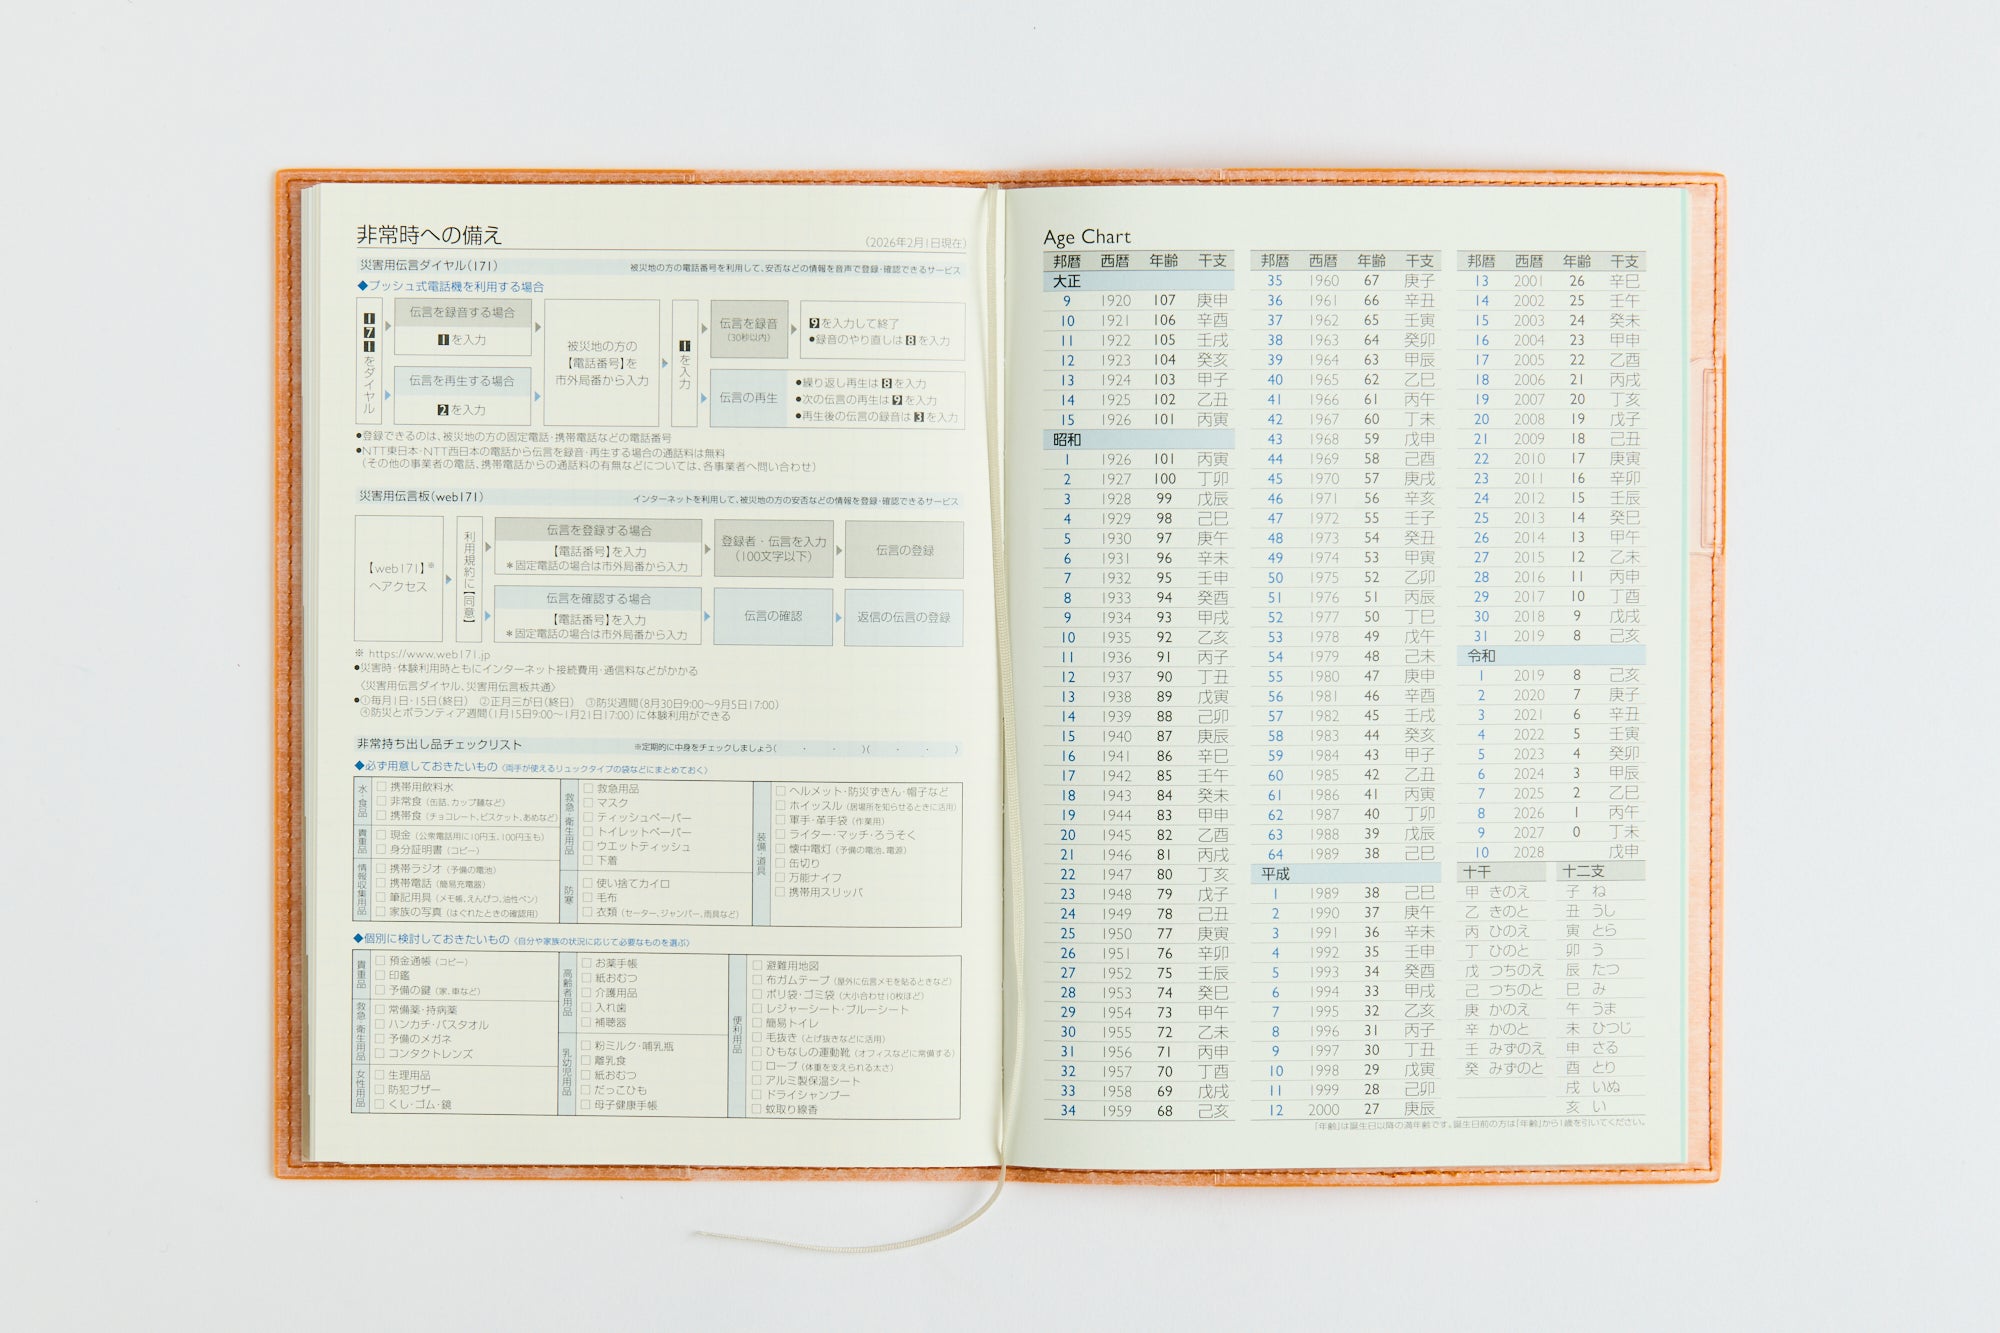 非常時への備え
（2026年2月1日現在）
災害用伝言ダイヤル(171)
被災地の方の電話番号を利用して、安否などの情報を音声で登録・確認できるサービス
◆プッシュ式電話機を利用する場合
171をダイヤル
伝言を録音する場合
1を入力
伝言を再生する場合
2を入力
被災地の方の
【電話番号】を
市外局番から入力
1を入力
伝言を録音
(30秒以内)
9を入力して終了
●録音のやり直しは8を入力
伝言の再生
●繰り返し再生は8を入力
●次の伝言の再生は9を入力
●再生後の伝言の録音は3を入力
●登録できるのは、被災地の方の固定電話・携帯電話などの電話番号
●NTT東日本・NTT西日本の電話から伝言を録音・再生する場合の通話料は無料
（その他の事業者の電話、携帯電話からの通話料の有無などについては、各事業者へ問い合わせ）
災害用伝言板(web171)
インターネットを利用して、被災地の方の安否などの情報を登録・確認できるサービス
【web171】※
へアクセス
利用規約に【同意】
伝言を登録する場合
【電話番号】を入力
＊固定電話の場合は市外局番から入力
登録者・伝言を入力
(100文字以下)
伝言の登録
伝言を確認する場合
【電話番号】を入力
＊固定電話の場合は市外局番から入力
伝言の確認
返信の伝言の登録
※ https://www.web171.jp
●災害時・体験利用時ともにインターネット接続費用・通信料などがかかる
〈災害用伝言ダイヤル、災害用伝言板共通〉
●①毎月1日・15日(終日) ②正月三が日(終日) ③防災週間(8月30日9:00～9月5日17:00)
④防災とボランティア週間(1月15日9:00～1月21日17:00)に体験利用ができる
非常持ち出し品チェックリスト
※定期的に中身をチェックしましょう( ・ ・ )( ・ ・ )
◆必ず用意しておきたいもの〈両手が使えるリュックタイプの袋などにまとめておく〉
水・食品
□ 携帯用飲料水
□ 非常食（缶詰、カップ麺など）
□ 携帯食（チョコレート、ビスケット、あめなど）
貴重品
□ 現金（公衆電話用に10円玉、100円玉も）
□ 身分証明書（コピー）
情報収集用品
□ 携帯ラジオ（予備の電池）
□ 携帯電話（簡易充電器）
□ 筆記用具（メモ帳、えんぴつ、油性ペン）
□ 家族の写真（はぐれたときの確認用）
救急・衛生用品
□ 救急用品
□ マスク
□ ティッシュペーパー
□ トイレットペーパー
□ ウエットティッシュ
□ 下着
防寒
□ 使い捨てカイロ
□ 毛布
□ 衣類（セーター、ジャンパー、雨具など）
装備・道具
□ ヘルメット・防災ずきん・帽子など
□ ホイッスル（居場所を知らせるときに活用）
□ 軍手・革手袋（作業用）
□ ライター・マッチ・ろうそく
□ 懐中電灯（予備の電池、電源）
□ 缶切り
□ 万能ナイフ
□ 携帯用スリッパ
◆個別に検討しておきたいもの〈自分や家族の状況に応じて必要なものを選ぶ〉
貴重品
□ 預金通帳（コピー）
□ 印鑑
□ 予備の鍵（家、車など）
救急・衛生用品
□ 常備薬・持病薬
□ ハンカチ・バスタオル
□ 予備のメガネ
□ コンタクトレンズ
女性用品
□ 生理用品
□ 防犯ブザー
□ くし・ゴム・鏡
高齢者用品
□ お薬手帳
□ 紙おむつ
□ 介護用品
□ 入れ歯
□ 補聴器
乳幼児用品
□ 粉ミルク・哺乳瓶
□ 離乳食
□ 紙おむつ
□ だっこひも
□ 母子健康手帳
便利用品
□ 避難用地図
□ 布ガムテープ（屋外に伝言メモを貼るときなど）
□ ポリ袋・ゴミ袋（大小合わせ10枚ほど）
□ レジャーシート・ブルーシート
□ 簡易トイレ
□ 毛抜き（とげ抜きなどに活用）
□ ひもなしの運動靴（オフィスなどに常備する）
□ ロープ（体重を支えられる太さ）
□ アルミ製保温シート
□ ドライシャンプー
□ 蚊取り線香
Age Chart
邦暦 西暦 年齢 干支
大正
9 1920 107 庚申
10 1921 106 辛酉
11 1922 105 壬戌
12 1923 104 癸亥
13 1924 103 甲子
14 1925 102 乙丑
15 1926 101 丙寅
昭和
1 1926 101 丙寅
2 1927 100 丁卯
3 1928 99 戊辰
4 1929 98 己巳
5 1930 97 庚午
6 1931 96 辛未
7 1932 95 壬申
8 1933 94 癸酉
9 1934 93 甲戌
10 1935 92 乙亥
11 1936 91 丙子
12 1937 90 丁丑
13 1938 89 戊寅
14 1939 88 己卯
15 1940 87 庚辰
16 1941 86 辛巳
17 1942 85 壬午
18 1943 84 癸未
19 1944 83 甲申
20 1945 82 乙酉
21 1946 81 丙戌
22 1947 80 丁亥
23 1948 79 戊子
24 1949 78 己丑
25 1950 77 庚寅
26 1951 76 辛卯
27 1952 75 壬辰
28 1953 74 癸巳
29 1954 73 甲午
30 1955 72 乙未
31 1956 71 丙申
32 1957 70 丁酉
33 1958 69 戊戌
34 1959 68 己亥
邦暦 西暦 年齢 干支
35 1960 67 庚子
36 1961 66 辛丑
37 1962 65 壬寅
38 1963 64 癸卯
39 1964 63 甲辰
40 1965 62 乙巳
41 1966 61 丙午
42 1967 60 丁未
43 1968 59 戊申
44 1969 58 己酉
45 1970 57 庚戌
46 1971 56 辛亥
47 1972 55 壬子
48 1973 54 癸丑
49 1974 53 甲寅
50 1975 52 乙卯
51 1976 51 丙辰
52 1977 50 丁巳
53 1978 49 戊午
54 1979 48 己未
55 1980 47 庚申
56 1981 46 辛酉
57 1982 45 壬戌
58 1983 44 癸亥
59 1984 43 甲子
60 1985 42 乙丑
61 1986 41 丙寅
62 1987 40 丁卯
63 1988 39 戊辰
64 1989 38 己巳
平成
1 1989 38 己巳
2 1990 37 庚午
3 1991 36 辛未
4 1992 35 壬申
5 1993 34 癸酉
6 1994 33 甲戌
7 1995 32 乙亥
8 1996 31 丙子
9 1997 30 丁丑
10 1998 29 戊寅
11 1999 28 己卯
12 2000 27 庚辰
邦暦 西暦 年齢 干支
13 2001 26 辛巳
14 2002 25 壬午
15 2003 24 癸未
16 2004 23 甲申
17 2005 22 乙酉
18 2006 21 丙戌
19 2007 20 丁亥
20 2008 19 戊子
21 2009 18 己丑
22 2010 17 庚寅
23 2011 16 辛卯
24 2012 15 壬辰
25 2013 14 癸巳
26 2014 13 甲午
27 2015 12 乙未
28 2016 11 丙申
29 2017 10 丁酉
30 2018 9 戊戌
31 2019 8 己亥
令和
1 2019 8 己亥
2 2020 7 庚子
3 2021 6 辛丑
4 2022 5 壬寅
5 2023 4 癸卯
6 2024 3 甲辰
7 2025 2 乙巳
8 2026 1 丙午
9 2027 0 丁未
10 2028 戊申
十干
甲 きのえ
乙 きのと
丙 ひのえ
丁 ひのと
戊 つちのえ
己 つちのと
庚 かのえ
辛 かのと
壬 みずのえ
癸 みずのと
十二支
子 ね
丑 うし
寅 とら
卯 う
辰 たつ
巳 み
午 うま
未 ひつじ
申 さる
酉 とり
戌 いぬ
亥 い
「年齢」は誕生日以降の満年齢です。誕生日前の方は「年齢」から1歳を引いてください。